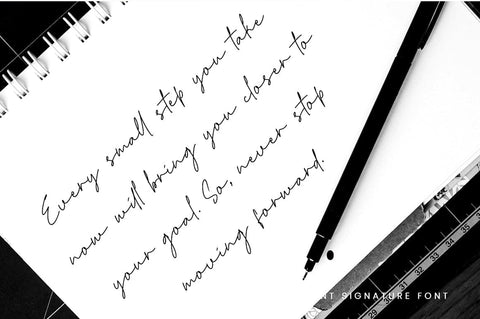 Every small step you take
now will bring you closer to
your goal. So, never stop
moving forward.
NT SIGNATURE FONT
35